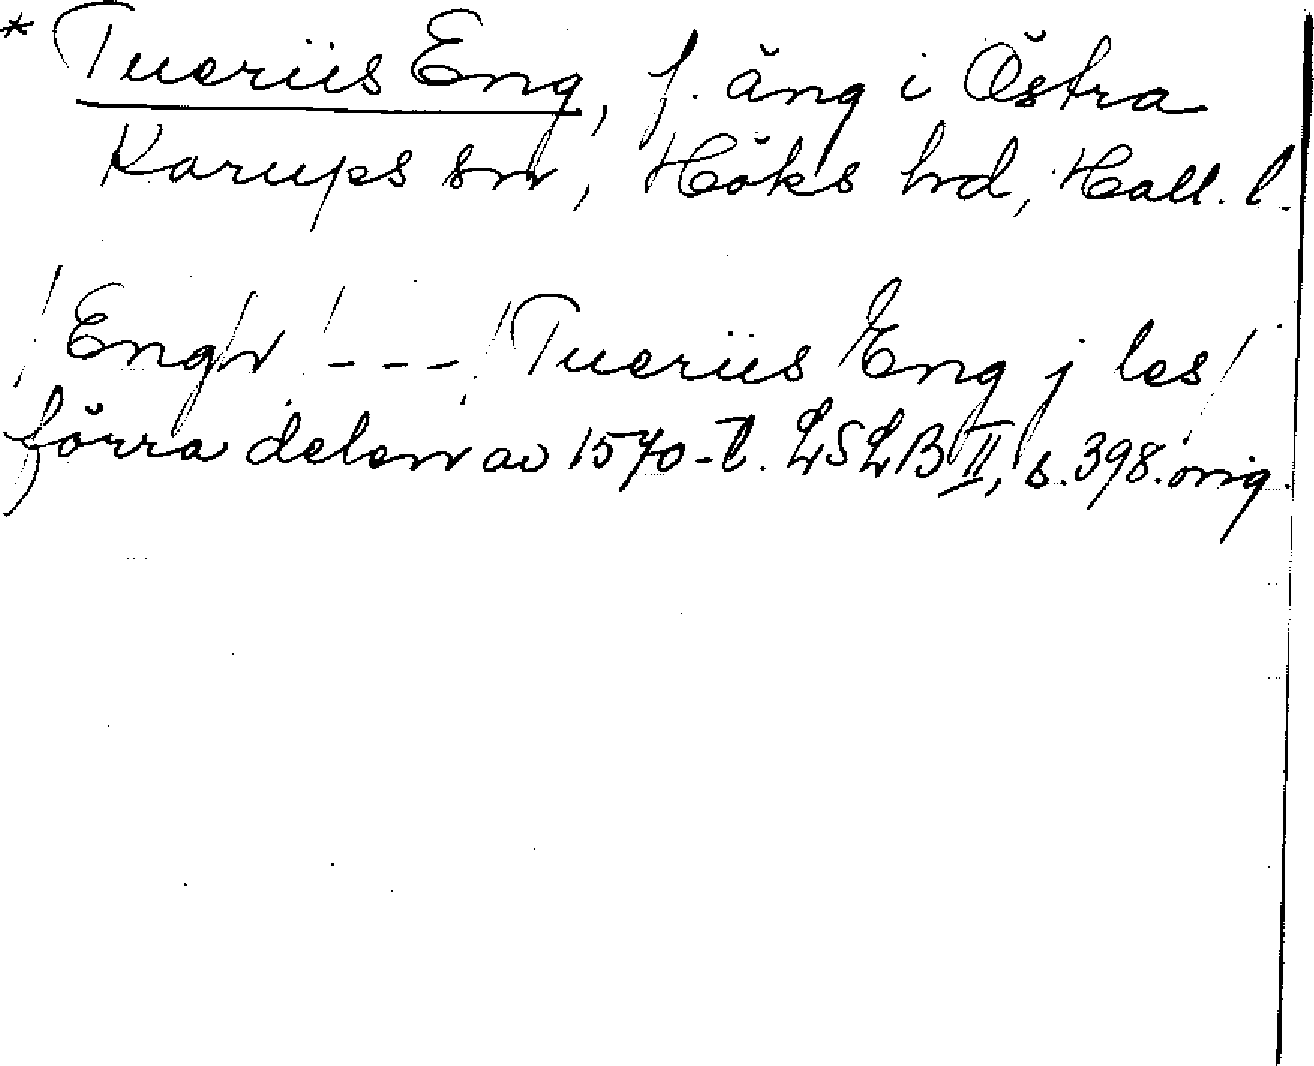 * Tueriis Eng, f. äng i Östra
Karups sn, Höks hrd, Hall. l.
/Engh/ --- /Tueriis Eng j les/
förra delen av 1570-t. LSLB II, s. 398. orig.